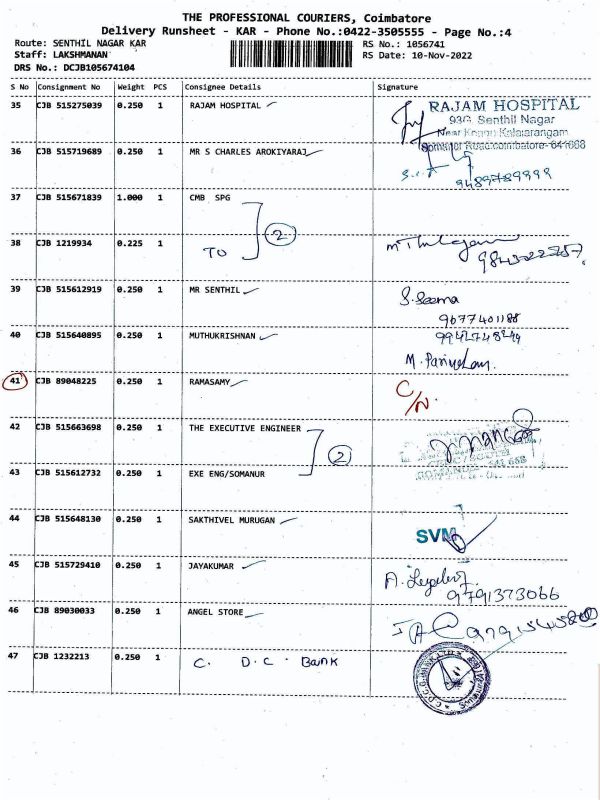 THE PROFESSIONAL COURIERS, Coimbatore
Delivery Runsheet - KAR - Phone No.:0422-3505555 - Page No.:4
Route: SENTHIL NAGAR KAR
RS No.: 1056741
Staff: LAKSHMANAN
RS Date: 10-Nov-2022
DRS No.: DCJB105674104
S No Consignment No Weight PCS Consignee Details Signature
35 CJB 515275039 0.250 1 RAJAM HOSPITAL
RAJAM HOSPITAL
93G, Senthil Nagar
Near Kalaiarangam
Coimbatore-
36 CJB 515719689 0.250 1 MR S CHARLES AROKIYARAJ
9489789999
37 CJB 515671839 1.000 1 CMB SPG
2
38 CJB 1219934 0.225 1 TO
39 CJB 515612919 0.250 1 MR SENTHIL
S. Seema
9677401188
40 CJB 515640895 0.250 1 MUTHUKRISHNAN
41 CJB 89048225 0.250 1 RAMASAMY
C/N.
42 CJB 515663698 0.250 1 THE EXECUTIVE ENGINEER
2
43 CJB 515612732 0.250 1 EXE ENG/SOMANUR
44 CJB 515648130 0.250 1 SAKTHIVEL MURUGAN
SVM
45 CJB 515729410 0.250 1 JAYAKUMAR
9791373066
46 CJB 89030033 0.250 1 ANGEL STORE
47 CJB 1232213 0.250 1 C. D.C. Bank